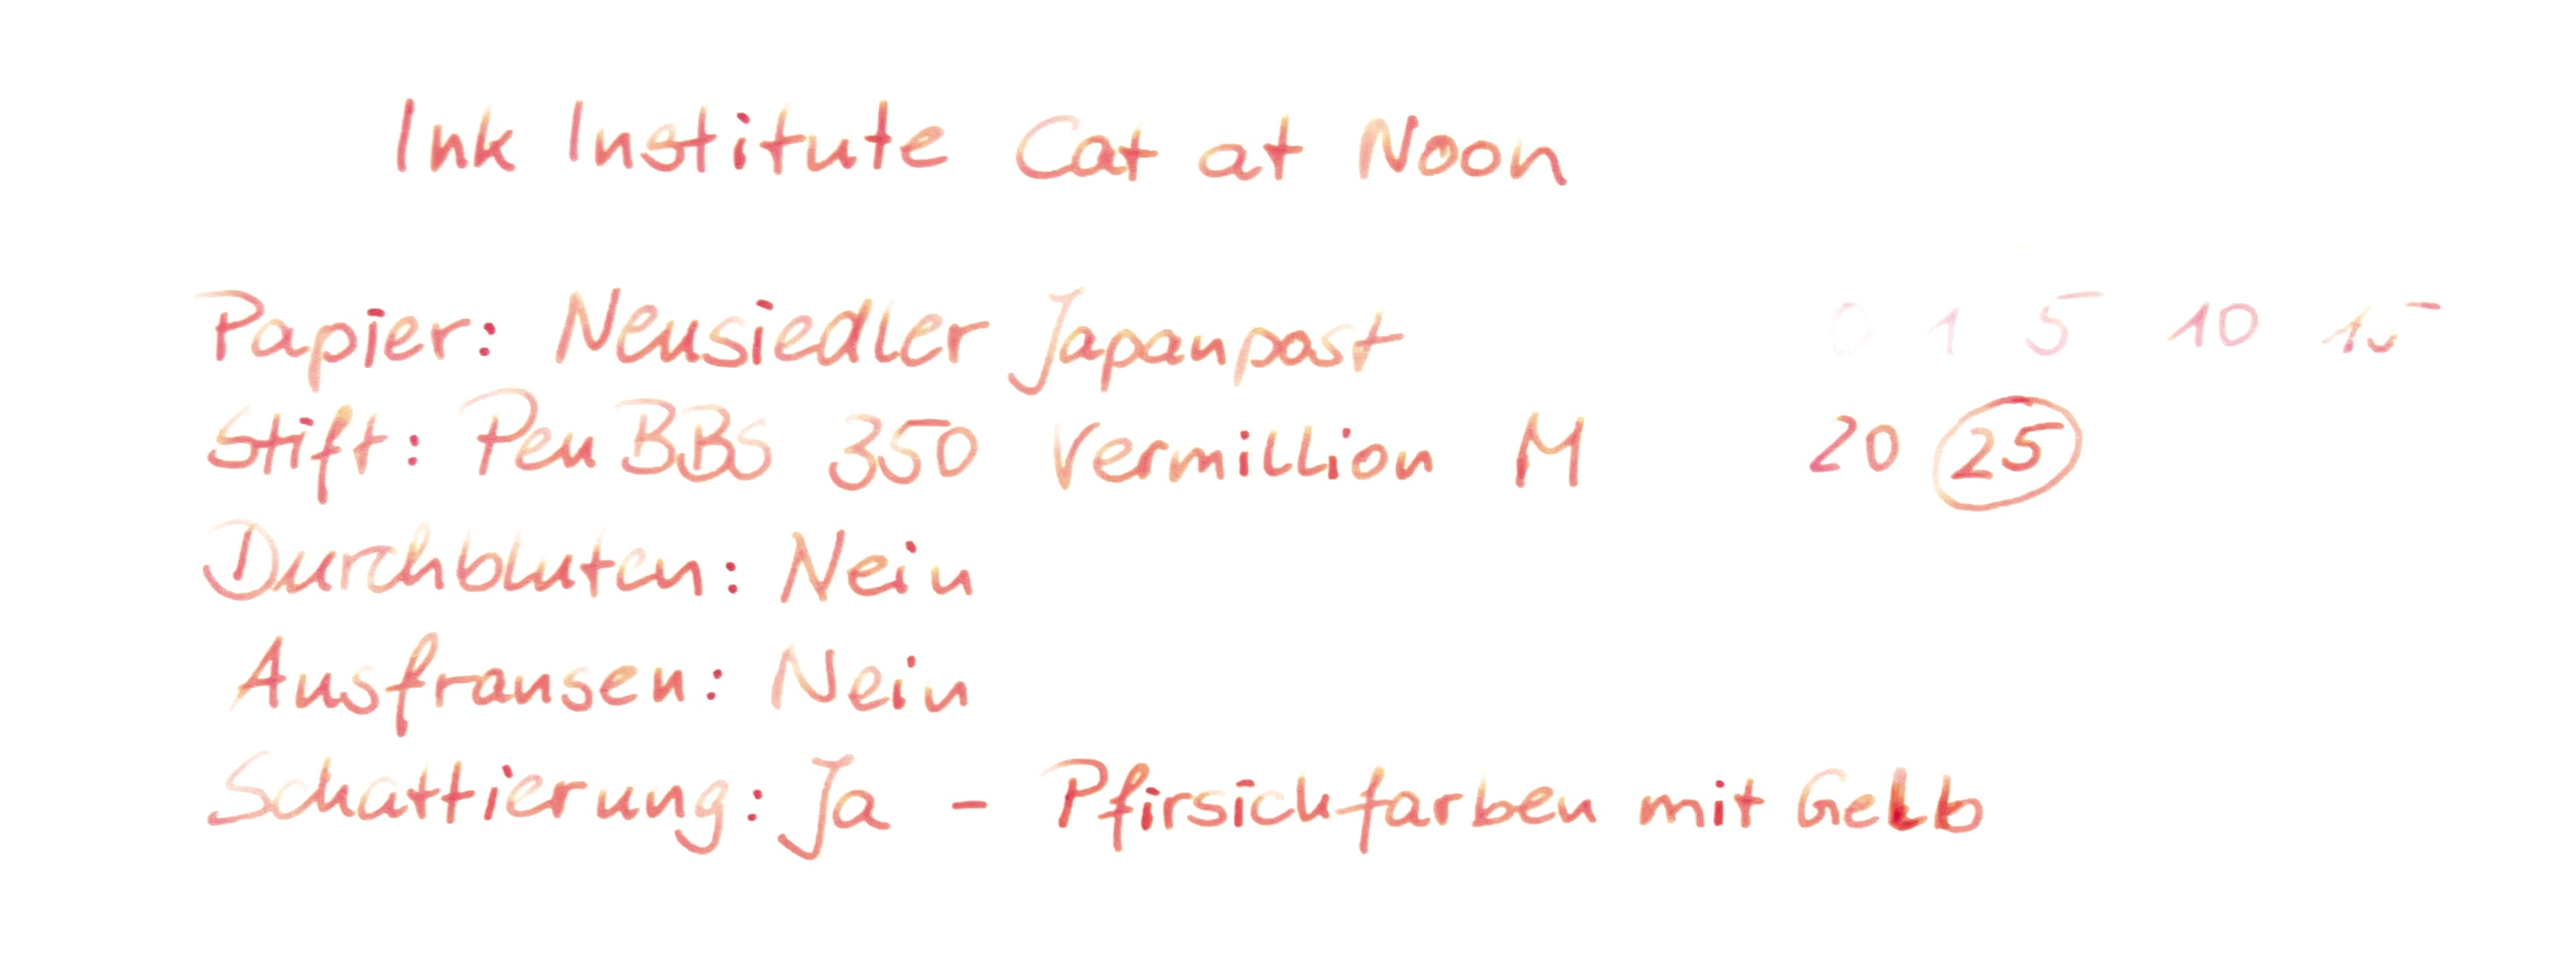 Ink Institute Cat at Noon
Papier: Neusiedler Japanpost 0 1 5 10 15
Stift: PenBBS 350 Vermillion M 20 25
Durchbluten: Nein
Ausfransen: Nein
Schattierung: Ja - Pfirsichfarben mit Gelb